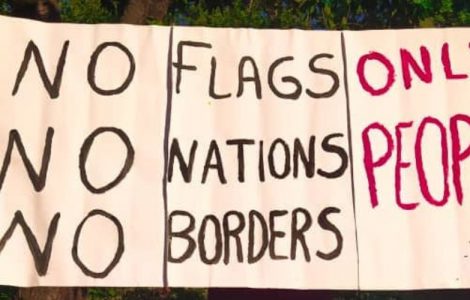 NO FLAGS
NO NATIONS
NO BORDERS
ONL
PEOP